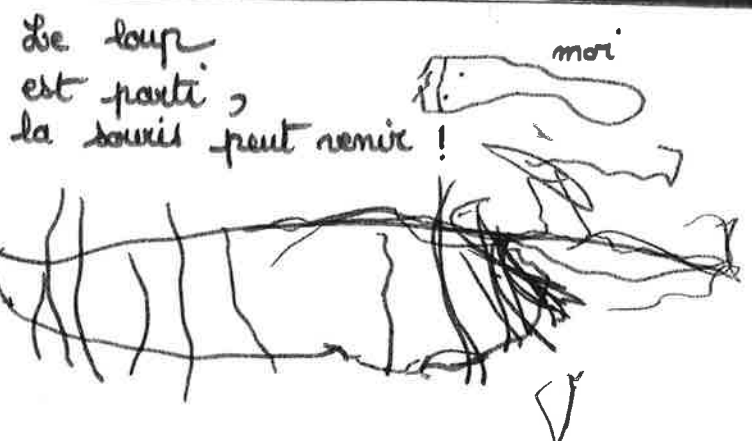 Le loup
moi
est parti,
la souris peut venir !